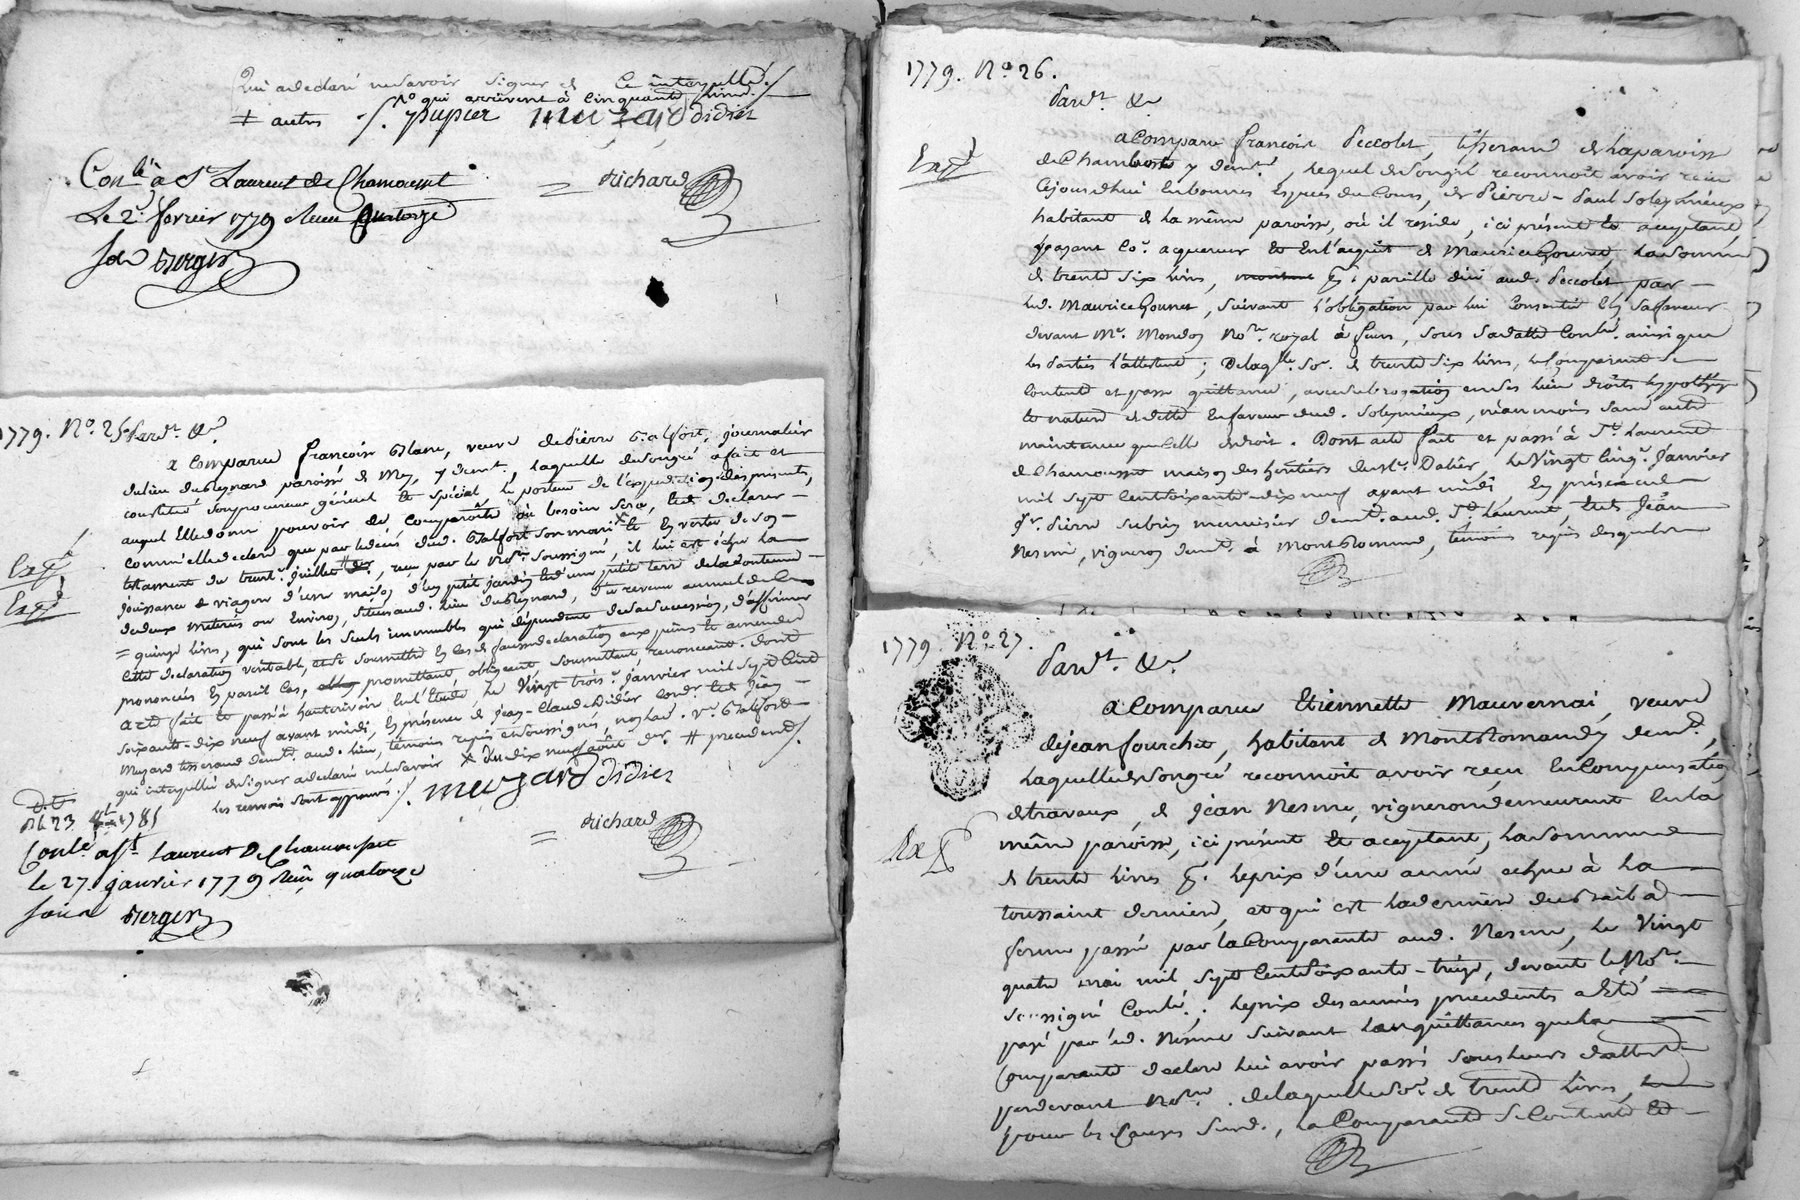 Qui a declaré ne savoir signer de ce interpellé ./.
no qui arrivent à cinquante livres
# autres ./. pupier muzard didier
Conlé à St Laurent de Chamousset
Le 2e fevrier 1779 Reçu Quatorze
sols Berger
= Richard
1779. No. 25 Pardt. &a
a Comparu françoise Blanc, veuve de Pierre Balfort, journalier
du lieu du Reynard paroisse de Mey, y demt. laquelle de son gré a fait et
constitué son procureur général et spécial, le porteur de l'expedition des presents,
auquel Elle donne pouvoir de comparoitre où besoin sera, et de declarer
comm'elle declare que par le decès dud. Balfort son mari & En vertu de son
testament du trente juillet der, reçu par le Nore soussigné, il lui est échu la
jouissance & viagere d'une maison, d'un petit jardin et d'une petite terre de la contenue
de deux meterées ou Environ, situés aud. lieu du Reynard, d'un revenu annuel de
= quinze livres, qui sont les seuls immeubles qui dépendent de sa succession, d'affirmer
Cette declaration veritable, et se soumettre En cas de fausse declaration aux peines & amendes
prononcées En pareil cas, promettant, obligeant soumettant renonceant. dont
acte fait & passé à hauterivoir En l'Etude, le Vingt trois janvier mil sept Cent
soixante-dix neuf avant midi, En présence de Jean-Claude Didier et de Jean
Muzard tisserand demt aud. lieu, témoins requis et soussignés, non lad. Ve Balfort
qui interpellée de signer a declaré ne le savoir x du dix neuf août der # precedent ./.
les renvois sont approuvés ./. muzard didier
Exp
Exp
1781
= Richard
Conlé à St Laurent De Chamousset
le 27 janvier 1779 Reçu quatorze
sols Berger
1779. No. 26.
Pardt. &a
Exp
a Comparu françois Peccolet, tisserand de la paroisse
de Chambost y demt, lequel de son gré reconnoit avoir reçu
Cejourdhui En bonnes Especes de Cours, de Pierre-Paul Soleymieux
habitant de la même paroisse, où il reside, ici présent & acceptant,
payant Co. acquereur & En l'acquit de Maurice Gounet, la somme
de trente six livres, pr. pareille due aud. Peccolet par
led. Maurice Gounet, suivant l'obligation par lui Consentie En sa faveur
devant Me. Mondon Nore royal à feurs, sous sa datte Conlée ainsi que
les Parties l'attestent ; De laqle. So. de trente six livres, le Comparant se
contente et passe quittance, avec subrogation en ses lieu droits hypotheque
& nature de dette En faveur dud. Soleymieux, néanmoins sans autre
maintenue que celle de droit. Dont acte fait et passé à St. Laurent
de Chamousset maison des heritiers de sr. Dalier, le Vingt Cinq janvier
mil sept Cent soixante dix neuf avant midi En présence de
sr. Pierre Subrin menuisier demt. aud. St. Laurent, et de Jean
Nesme, vigneron demt à Montromant, témoins requis desquels
1779 No. 27.
Pardt. &a
a Comparu Etiennette Mauvernai, veuve
de jean fourchet, habitant de Montromand y demt,
laquelle de son gré reconnoit avoir reçu En Compensation
de travaux, de Jean Nesme, vigneron demeurant En la
même paroisse, ici présent & acceptant, la somme
de trente livres pr. le prix d'une année echue à la
toussaint derniere, et qui est la derniere du Bail à
ferme passé par la Comparante aud. Nesme, le Vingt
quatre mai mil sept Cent soixante-treize, devant le Nore.
soussigné Conlé ; le prix des années precedentes a Eté
payé par led. Nesme suivant les quittances que la
Comparante declare lui avoir passé sous leurs dattes
pardevant Nore. de laquelle So. de trente livres,
pour les Causes susd., la Comparante se Contente &
Exp